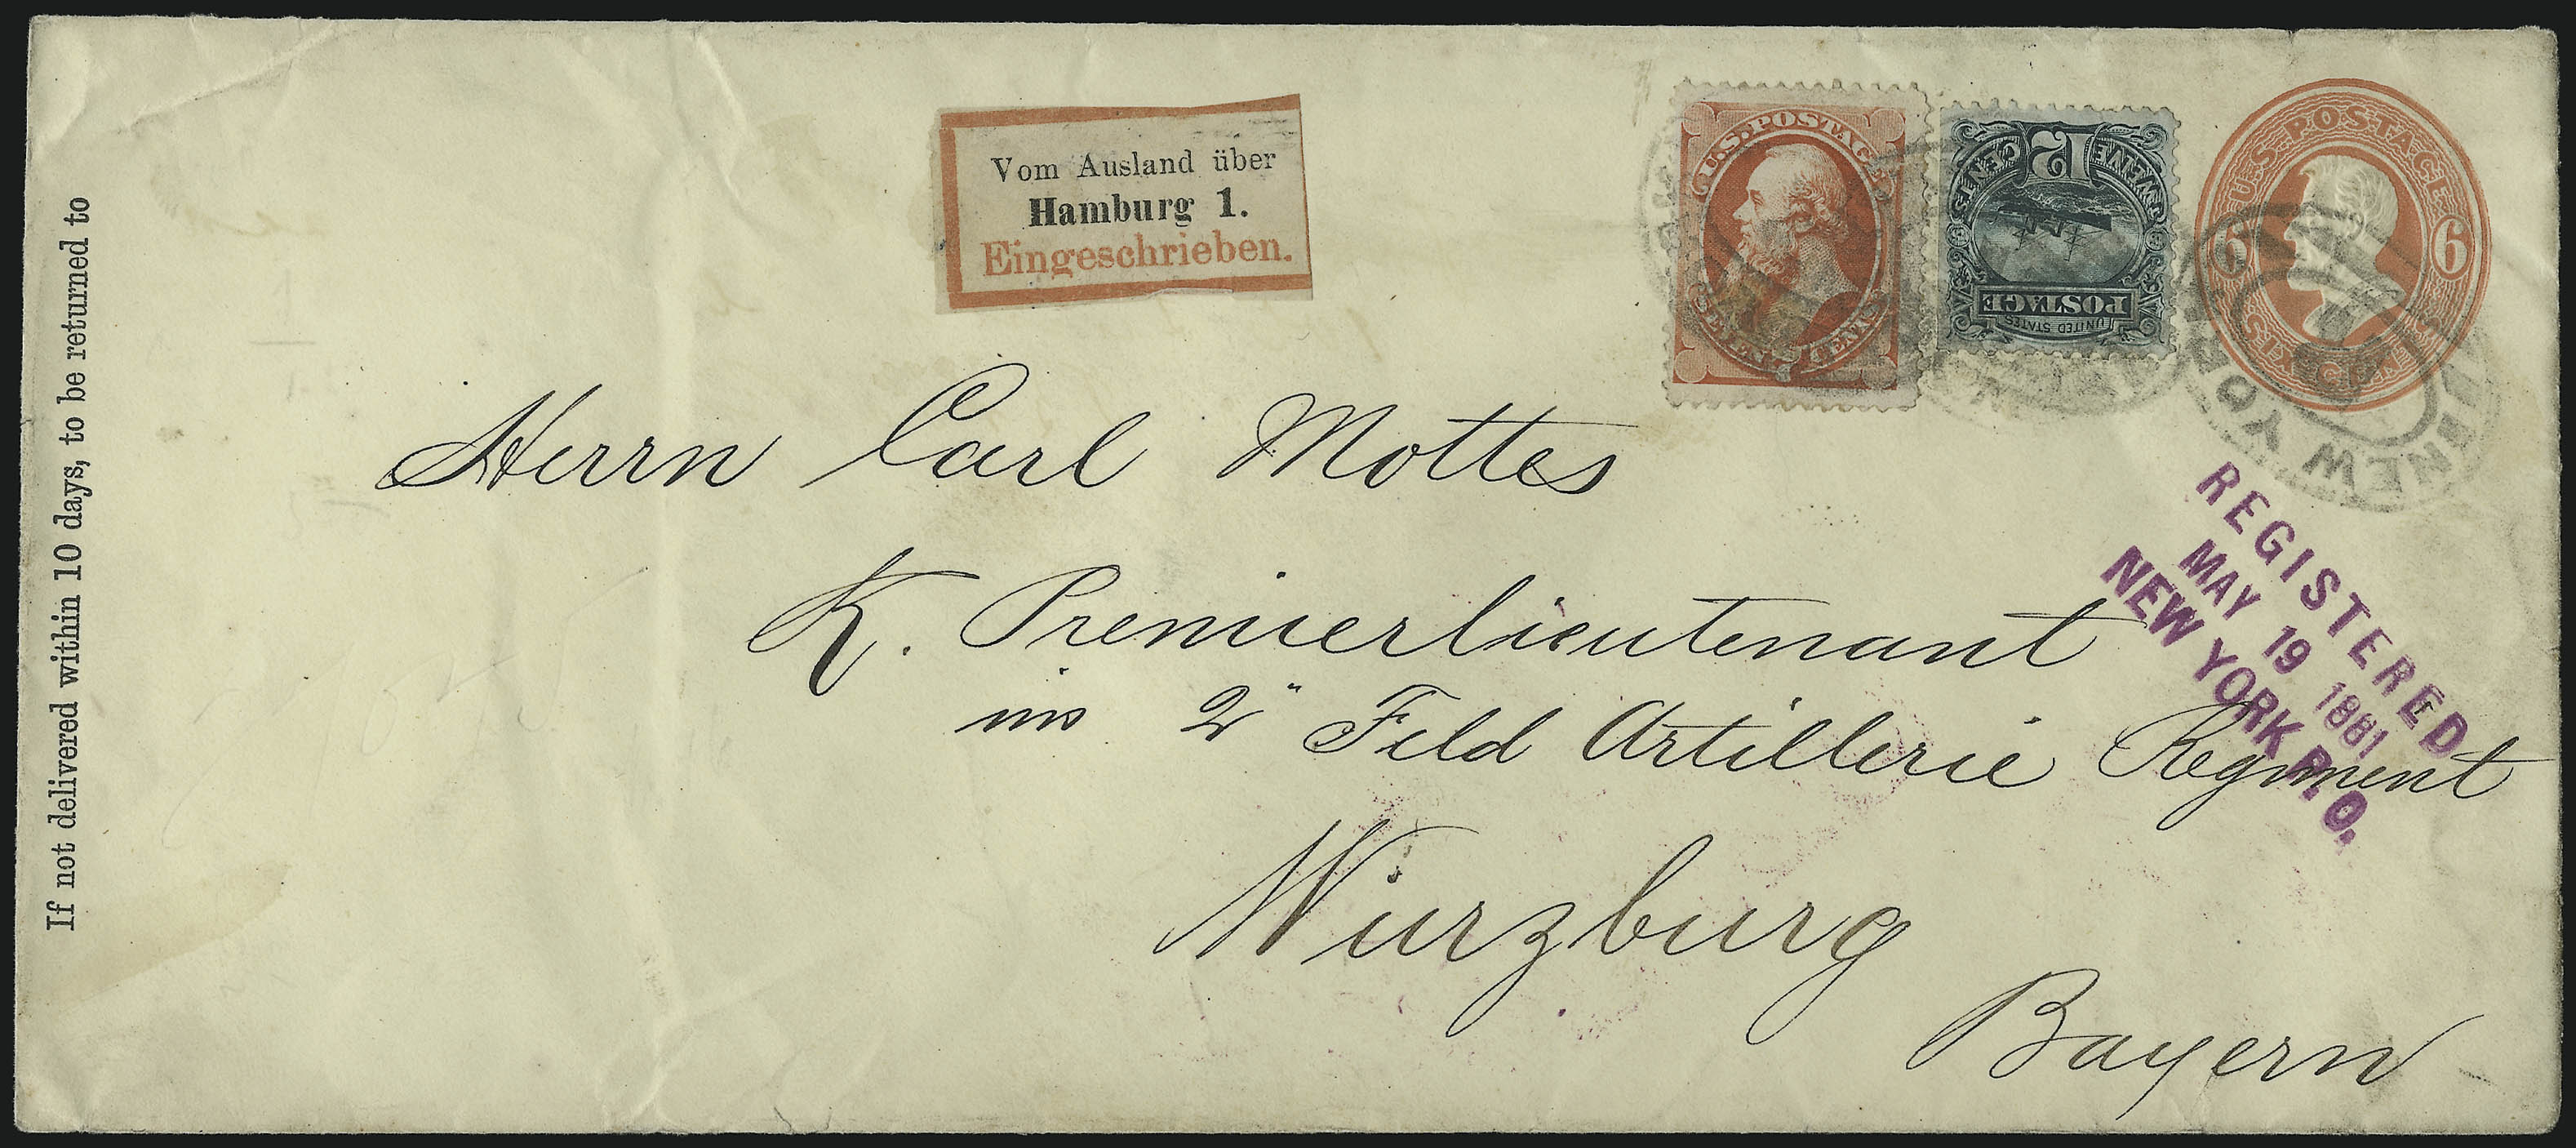 If not delivered within 10 days, to be returned to
Vom Ausland über
Hamburg 1.
Eingeschrieben.
U.S. POSTAGE
SEVEN CENTS
12
TWELVE CENTS
POSTAGE
UNITED STATES
U.S. POSTAGE
6 6
SIX CENTS
NEW YORK
REGISTERED
MAY 19 1881
NEW YORK P.O.
Herrn Carl Mottes
K. Premierlieutenant
im 2" Feld Artillerie Regiment
Wurzburg
Bayern